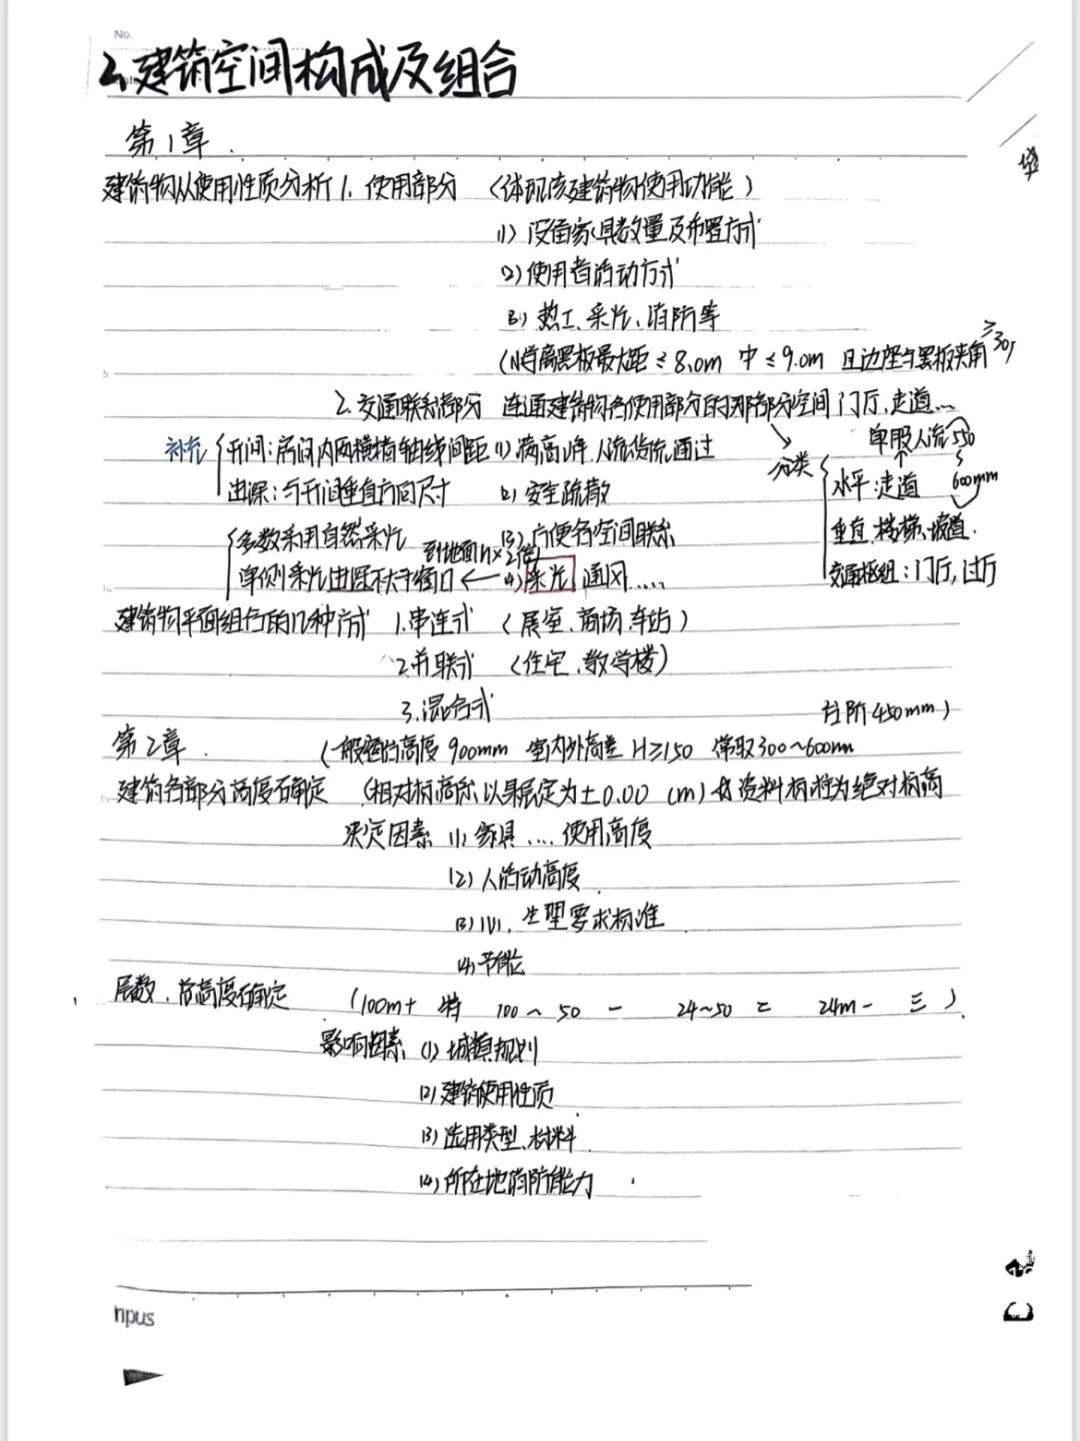 No.
2、建筑空间构成及组合
第1章.
建筑物从使用性质分析 1. 使用部分 (体现该建筑物使用功能)
(1) 设备家具数量及布置方式
(2) 使用者活动方式
(3) 热工、采光、消防等
离黑板最大距 ≤8.0m 中≤9.0m 且边座与黑板夹角≥30)
2. 交通联系部分 连通建筑物各使用部分的那部分空间 门厅、走道...
补充 开间:房间内两横墙轴线间距 (1) 满高峰 人流货流通过
分类 单股人流 550 600mm
进深:与开间垂直方向尺寸 (2) 安全疏散
水平:走道
多数采用自然采光 (3) 方便各空间联系
垂直.楼梯、坡道.
单侧采光进深不大于窗口 到地面h×2倍 ← (4) 采光 通风....
交通枢纽:门厅,过厅
建筑物平面组合的几种方式 1.串连式 (展室、商场、车站)
2.并联式 (住宅、教学楼)
3.混合式
台阶450mm)
第2章. (一般窗台高度 900mm 室内外高差 H≥150 常取300~600mm
建筑各部分高度确定 (相对标高 以 层定为±0.00 (m) 资料标 为绝对标高
决定因素 (1) 家具.... 使用高度
(2) 人活动高度
(3) 心. 生理要求标准
(4) 节能
层数、总高度确定 (100m+ 特 100~50 一 24~50 二 24m- 三).
影响因素 (1) 城镇规划
(2) 建筑使用性质
(3) 选用类型、材料
(4) 所在地消防能力.
npus